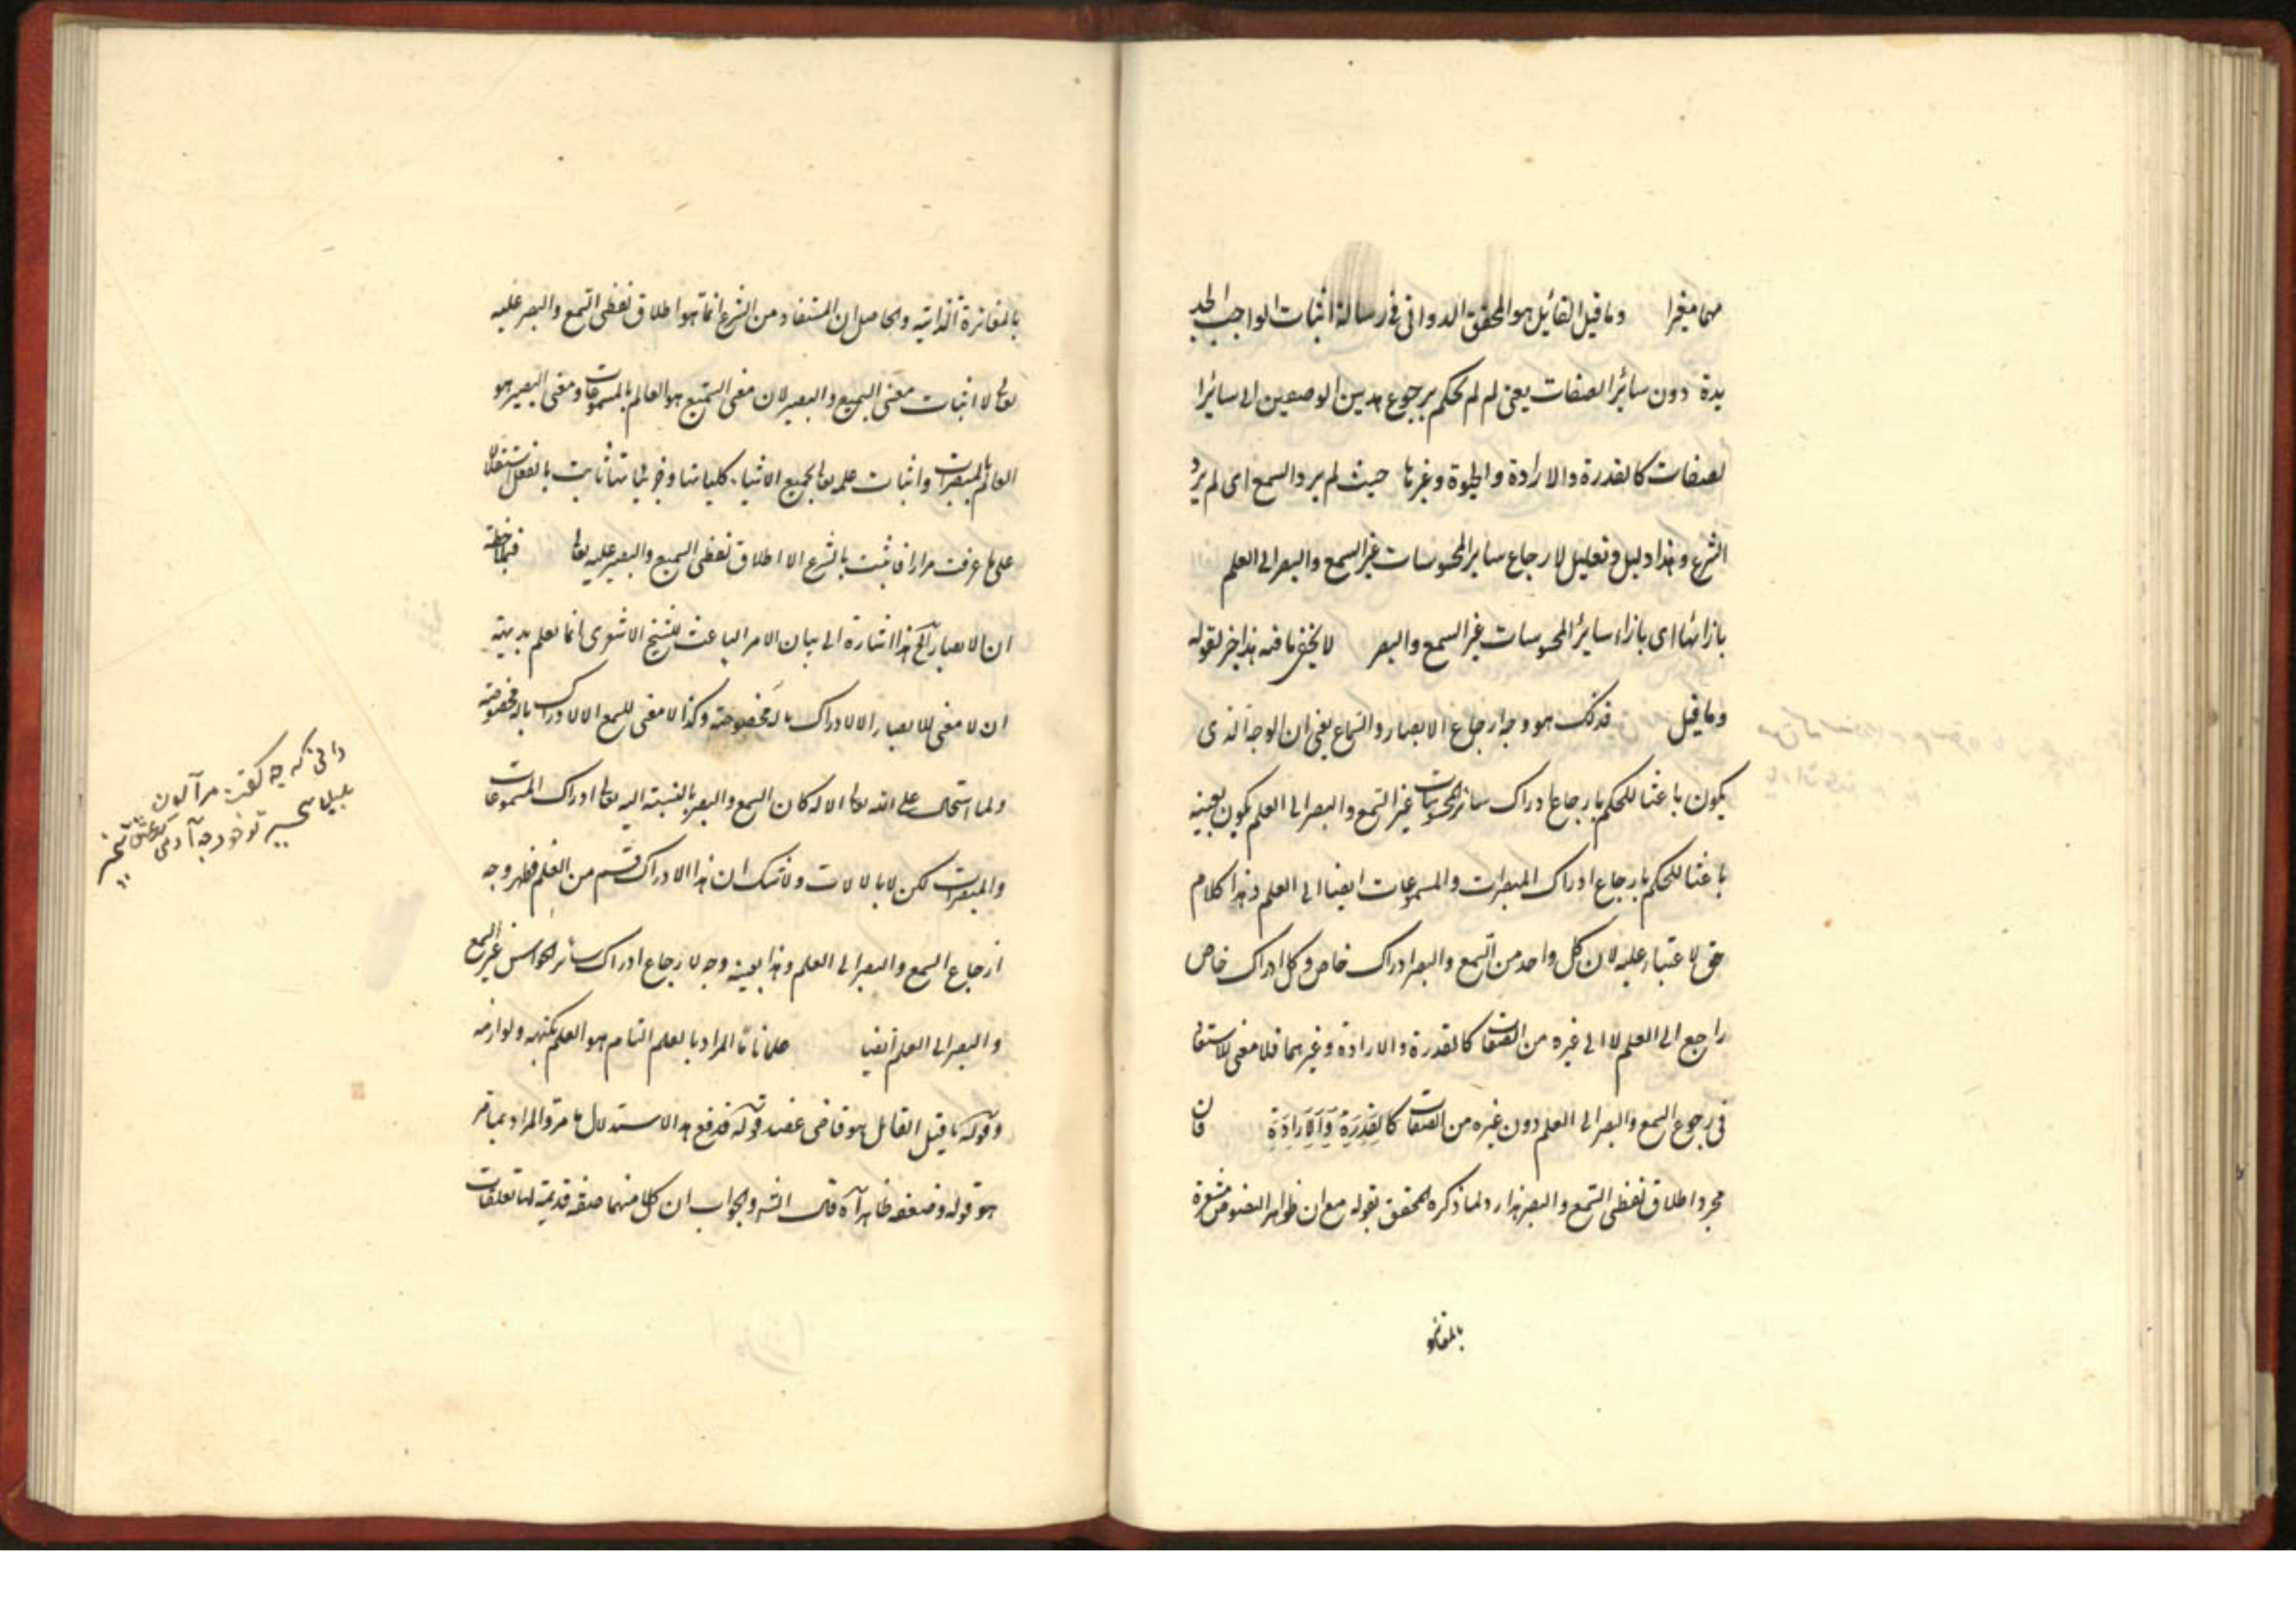 وما قيل القائيل هو المحقق الدواني في رسالة اثبات الواجب الجد
يدة دون سائر الصفات يعني لم لم يحكم برجوع هذين الوصفين الى سائر ا
لصفات كالقدرة والارادة والحيوة وغيرها حيث لم يرد السمع اى لم يرد
الشرع وهذا دليل وتعليل لارجاع ساير المحسوسات غير السمع والبصر الى العلم
بازائها اى بازاء سائر المحسوسات غير السمع والبصر لا يخفى ما فيه هذا خبر لقوله
وما قيل فذلك هو وجه ارجاع الابصار والسماع يعني ان الوجه الذى
يكون باعثا للحكم بارجاع ادراك سائر المحسوسات غير السمع والبصر الى العلم يكون بعينه
باعثا للحكم بارجاع ادراك المبصرات والمسموعات ايضا الى العلم وهذا كلام
حق لا غبار عليه لان كل واحد من السمع والبصر ادراك خاص وكل ادراك خاص
راجع الى العلم لا الى غيره من الصفات كالقدرة والارادة وغيرهما فلا معنى للاستفا
في رجوع السمع والبصر الى العلم دون غيره من الصفات كالقدرة والارادة فان
مجرد اطلاق لفظى السمع والبصر هذا رد لما ذكره المحقق بقوله مع ان ظواهر النصوص مشعرة
بالمغايرة
بالمغايرة الذاتية والحاصل ان المستفاد من الشرع انما هو اطلاق لفظى السمع والبصر عليه
تعالى لا اثبات معنى السميع والبصير لان معنى السميع هو العالم بالمسموعات ومعنى البصير هو
العالم بالمبصرات واثبات علمه تعالى بجميع الاشياء كلياتها وجزئياتها ثابت بالعقل استقلالا
على ما عرفت مرارا فما ثبت بالشرع الا اطلاق لفظى السميع والبصير عليه تعالى
ان الابصار الخ هذا اشارة الى بيان الامر الباعث للشيخ الاشعرى فانا نعلم بديهة
ان لا معنى للابصار الا الادراك بالة مخصوصة وكذا لا معنى للسمع الا الادراك بالة مخصوصة
ولما استحال على الله تعالى الالة كان السمع والبصر بالنسبة اليه تعالى ادراك المسموعات
والمبصرات لكن لا بالالات ولا شك ان هذا الادراك قسم من العلم فظهر وجه
ارجاع السمع والبصر الى العلم وهذا بعينه وجه لارجاع ادراك سائر الحواس غير السمع
والبصر الى العلم ايضا علما تاما المراد بالعلم التام هو العلم بكنهه ولوازمه
وقوله ما قيل القائل هو قاضى عضد قوله فدفع هذا الاستدلال ما مر والمراد بما مر
هو قوله وضعفه ظاهر اه قال الشر والجواب ان كلا منهما صفة قديمة لها تعلقات
دانى كه چه گفت مرا آن
بلبل سحرى تو خود چه آدمى كز عشق بيخبرى